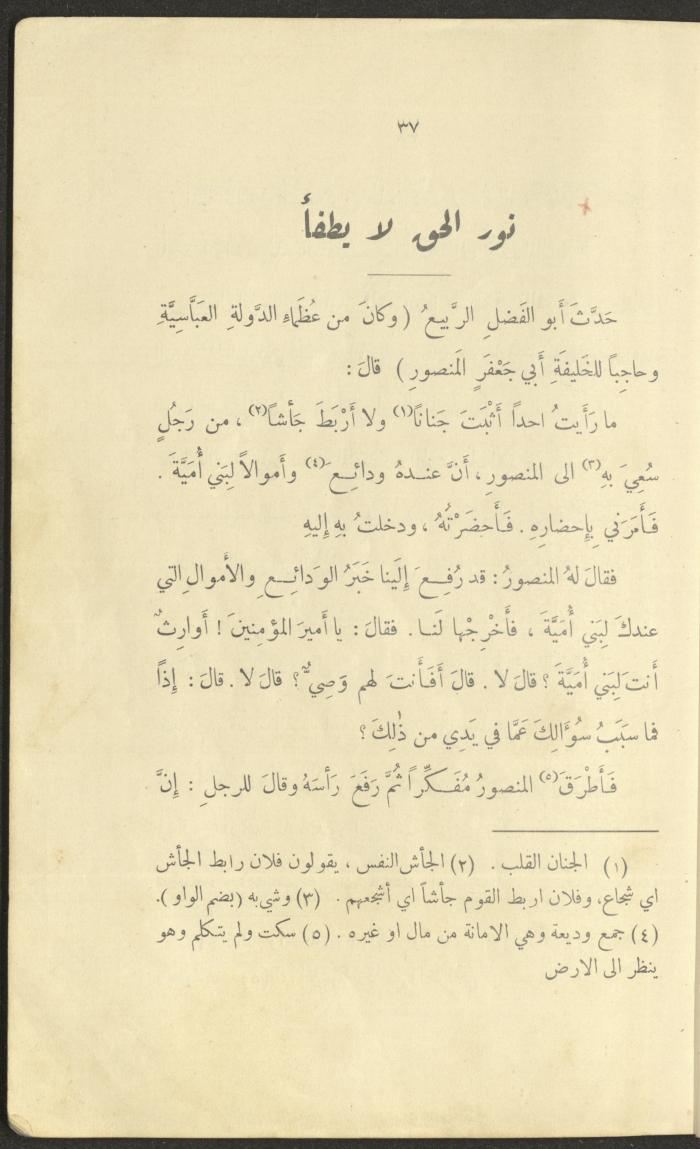 ٣٧
نور الحق لا يطفأ
حَدَّثَ أَبو الفَضلِ الرَّبيعُ (وكانَ من عُظَماءِ الدَّولةِ العَبَّاسِيَّةِ
وحاجِباً للخَليفَةِ أَبي جَعْفَرٍ المَنصورِ) قالَ:
ما رَأَيتُ احداً أَثْبَتَ جَناناً(١) ولا أَرْبَطَ جَأشاً(٢)، من رَجُلٍ
سُعِيَ بهِ(٣) الى المنصورِ، أَنَّ عندهُ ودائِعَ(٤) وأَموالاً لِبَني أُمَيَّةَ.
فَأَمَرَني بِإِحضارِهِ. فَأَحضَرْتُهُ، ودخلتُ بهِ إليهِ
فقالَ لهُ المنصورُ: قد رُفِعَ إِلَينا خَبَرُ الوَدائِعِ والأَموالِ التي
عندكَ لِبَني أُمَيَّةَ، فَأَخْرِجْها لَنا. فقالَ: يا أَميرَ المؤمِنينَ! أَوارِثٌ
أَنتَ لِبَني أُمَيَّةَ؟ قالَ لا. قالَ أَفَأَنتَ لهم وَصِيٌّ؟ قالَ لا. قالَ: إِذاً
فما سبَبُ سُؤَالِكَ عَمَّا في يَدِي من ذٰلِكَ؟
فَأَطْرَقَ(٥) المنصورُ مُفَكِّراً ثُمَّ رَفَعَ رَأسَهُ وقالَ للرجلِ: إِنَّ
(١) الجنان القلب. (٢) الجأش النفس، يقولون فلان رابط الجأش
اي شجاع، وفلان اربط القوم جأشاً اي أشجعهم. (٣) وشي به (بضم الواو).
(٤) جمع وديعة وهي الامانة من مال او غيره. (٥) سكت ولم يتكلم وهو
ينظر الى الارض